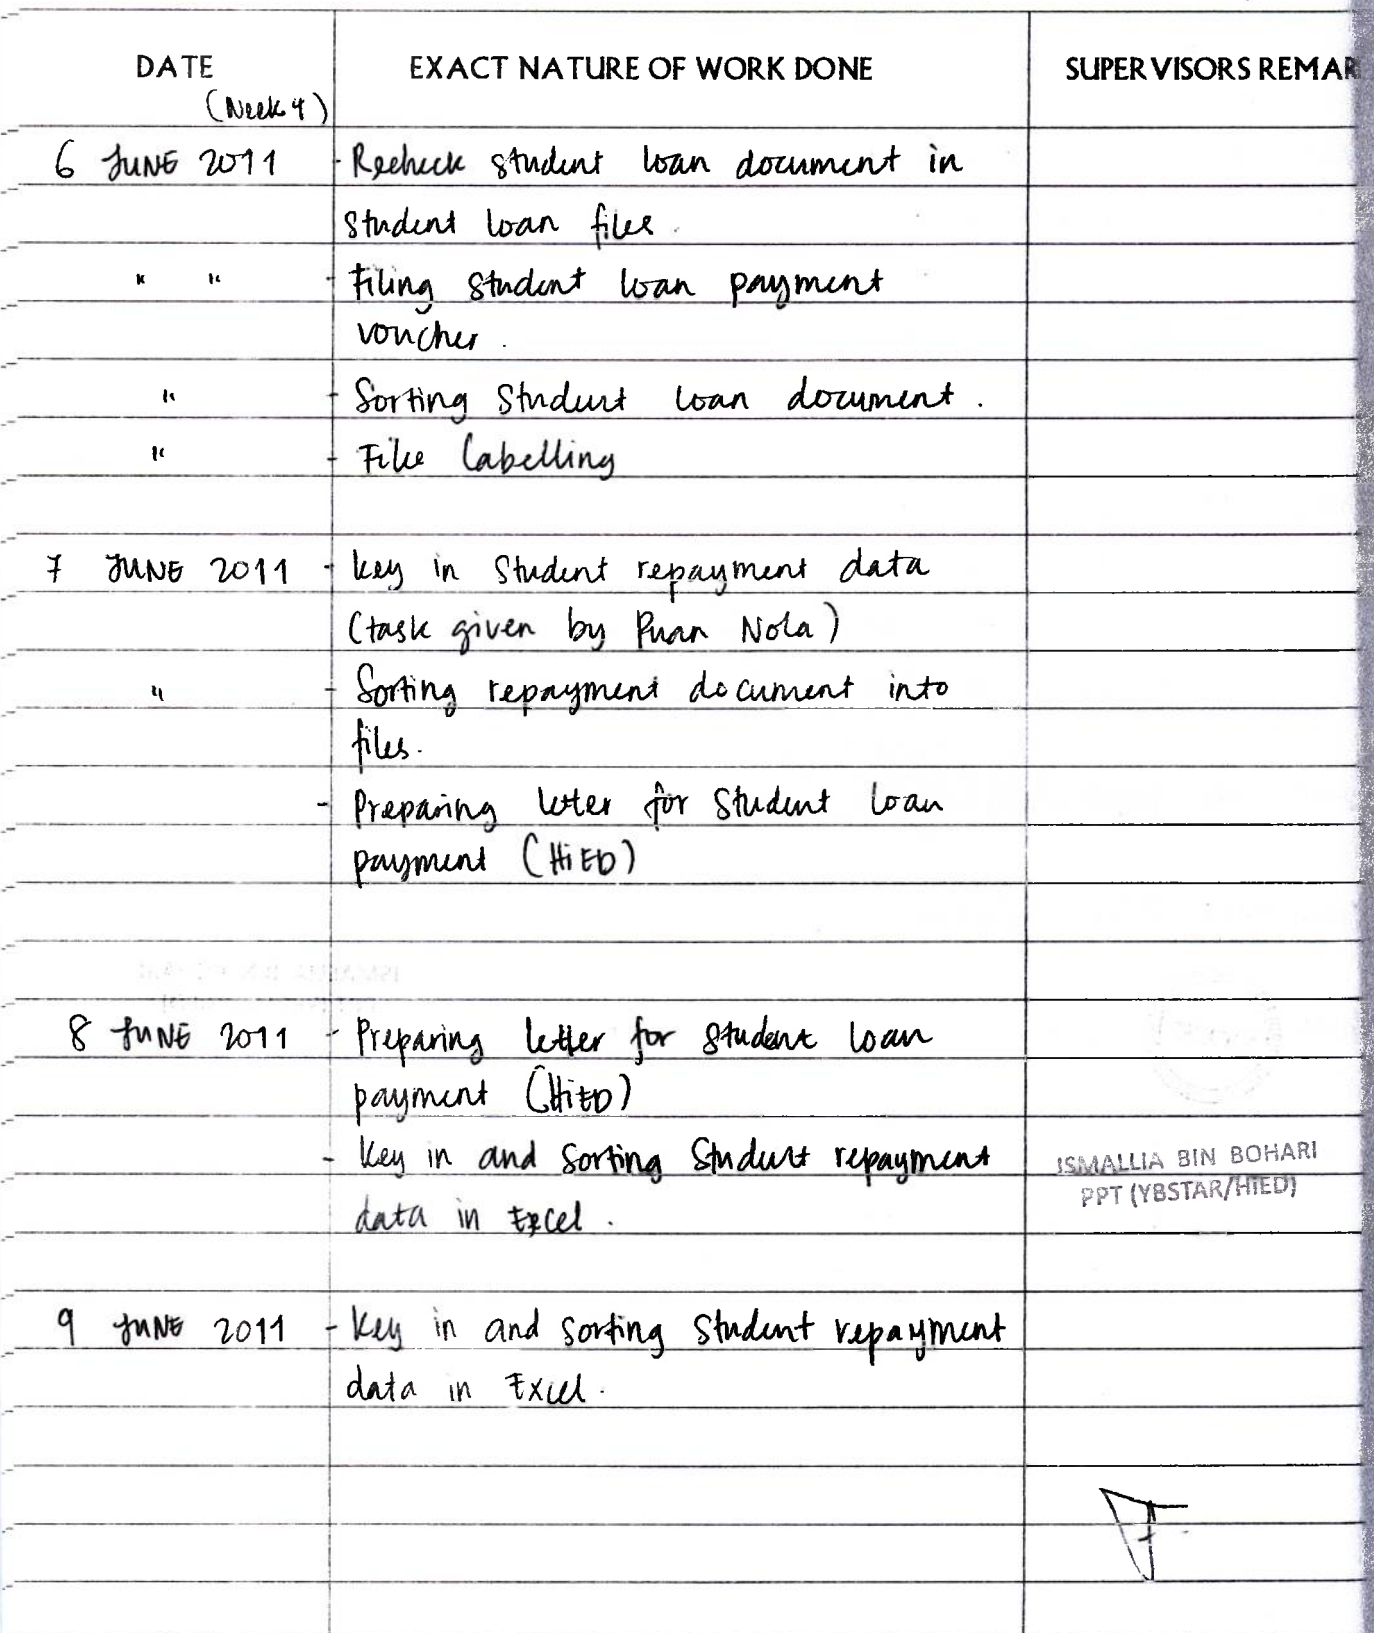 DATE EXACT NATURE OF WORK DONE SUPERVISORS REMAR
(Week 4)
6 JUNE 2011 - Recheck student loan document in
student loan files.
" " - Filing student loan payment
voucher.
" - Sorting Student loan document.
" - File labelling
7 JUNE 2011 - key in Student repayment data
(task given by Puan Nola)
" - Sorting repayment document into
files.
- Preparing letter for Student loan
payment (HiED)
8 JUNE 2011 - Preparing letter for Student loan
payment (HiED)
- Key in and Sorting Student repayment
ISMALLIA BIN BOHARI
PPT (YBSTAR/HIED)
data in Excel.
9 JUNE 2011 - Key in and Sorting Student repayment
data in Excel.